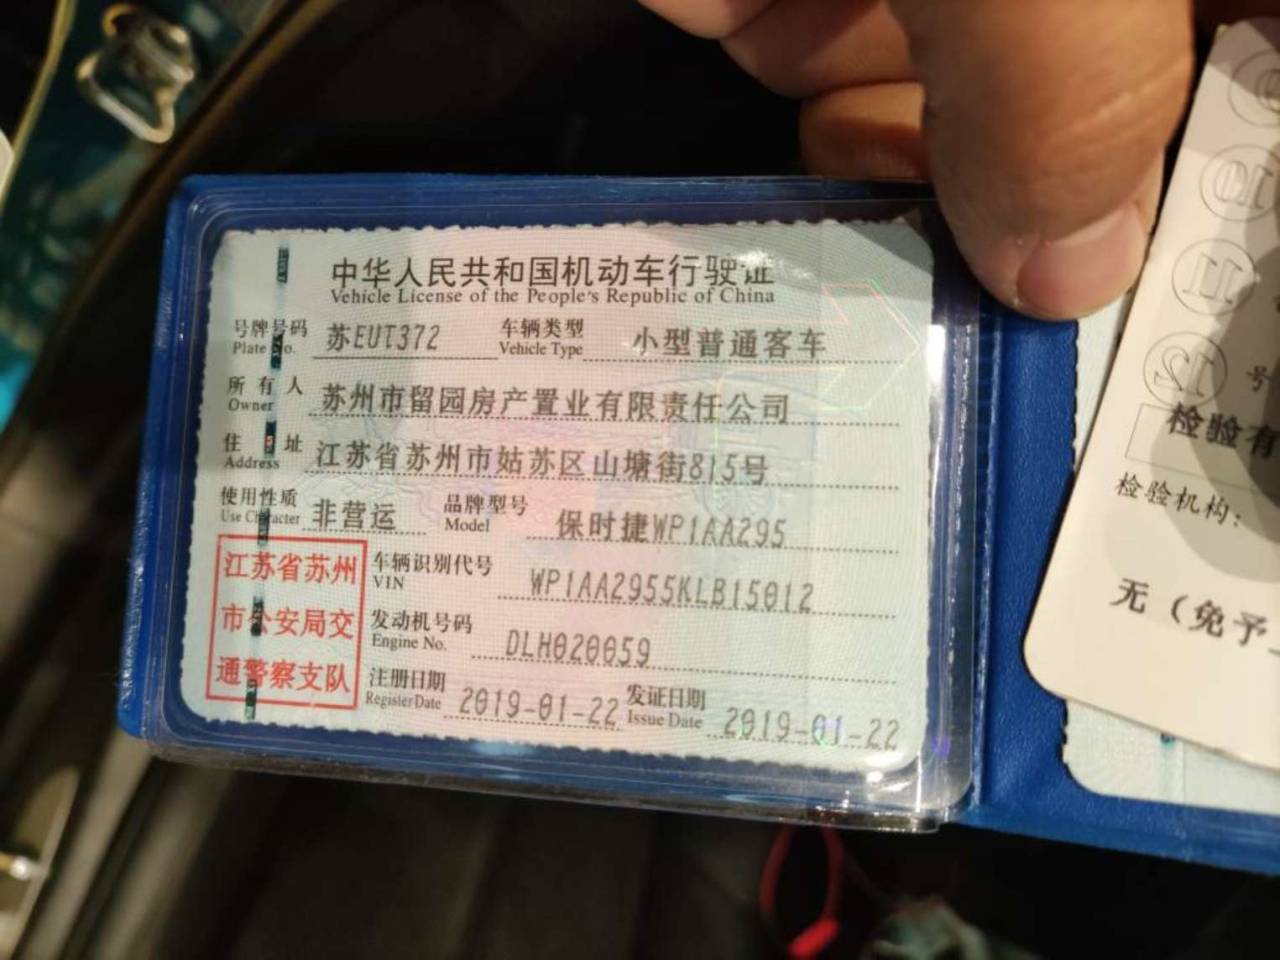 中华人民共和国机动车行驶证
Vehicle License of the People's Republic of China
号牌号码 苏EUT372 车辆类型 小型普通客车
Plate No. Vehicle Type
所有人 苏州市留园房产置业有限责任公司
Owner
住址 江苏省苏州市姑苏区山塘街815号
Address
使用性质 非营运 品牌型号 保时捷WP1AA295
Use Character Model
江苏省苏州 车辆识别代号 WP1AA2955KLB15012
VIN
市公安局交 发动机号码 DLH020059
Engine No.
通警察支队 注册日期 2019-01-22 发证日期 2019-01-22
Register Date Issue Date
10
11
12
号
检验有
检验机构:
无（免予